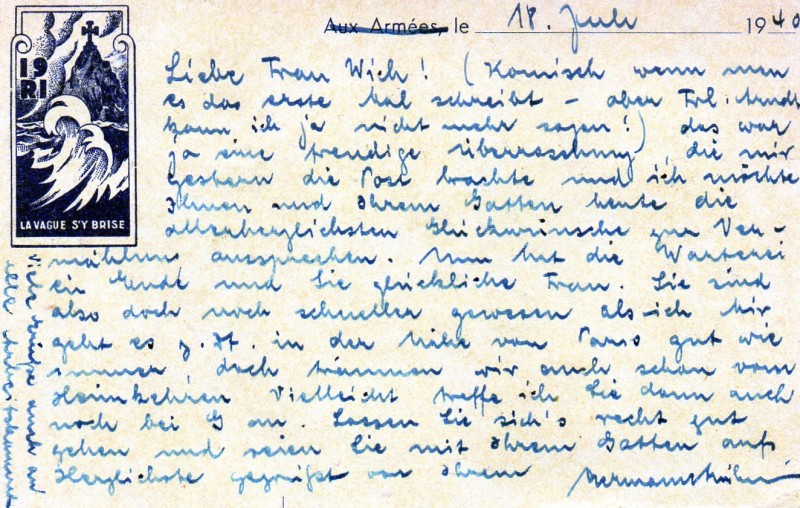 Aux Armées, le 18. Juli 1940
19
RI
LA VAGUE S'Y BRISE
Liebe Frau Wich! (Komisch wenn man
es das erste Mal schreibt - aber Frl. Arndt
kann ich ja nicht mehr sagen!) das war
ja eine freudige Überraschung die mir
gestern die Post brachte und ich möchte
Ihnen und Ihrem Gatten heute die
allerherzlichsten Glückwünsche zur Ver-
mählung aussprechen. Nun hat die Warterei
ein Ende und Sie glückliche Frau. Sie sind
also doch noch schneller gewesen als ich. Mir
geht es z. Zt. in der Nähe von Paris gut wie
immer, doch träumen wir auch schon vom
Heimkehren. Vielleicht treffe ich Sie dann auch
noch bei G an. Lassen Sie sich's recht gut
gehen und seien Sie mit Ihrem Gatten aufs
Herzlichste gegrüßt von Ihrem
Viele Grüße auch an
alle